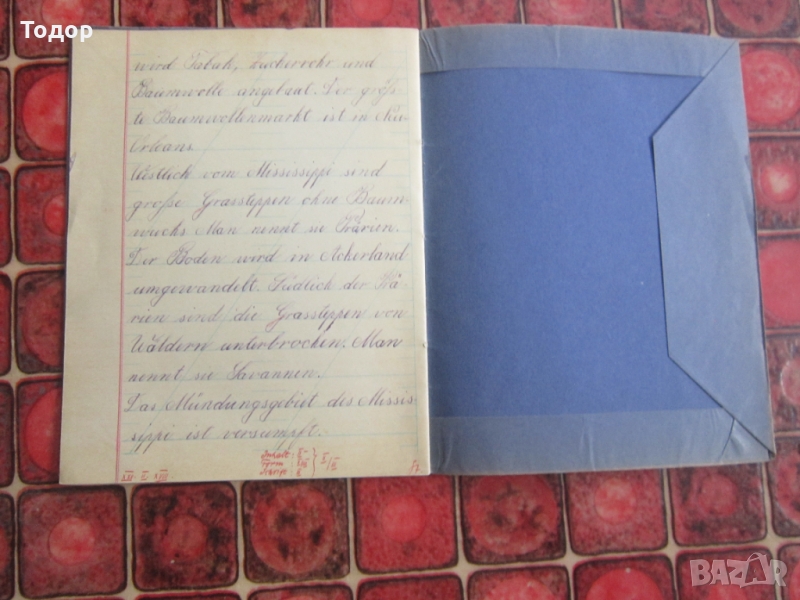 Todor
wird Tabak, Zuckerrohr und
Baumwolle angebaut. Der größ-
te Baumwollenmarkt ist in Neu
Orleans.
Westlich vom Mississippi sind
große Grassteppen ohne Baum-
wuchs. Man nennt sie Prärien.
Der Boden wird in Ackerland
umgewandelt. Südlich der Prä-
rien sind die Grassteppen von
Wäldern unterbrochen. Man
nennt sie Savannen.
Das Mündungsgebiet des Missis-
sippi ist versumpft.
Inhalt: II
Form: III
Schrift: II
BAZAR